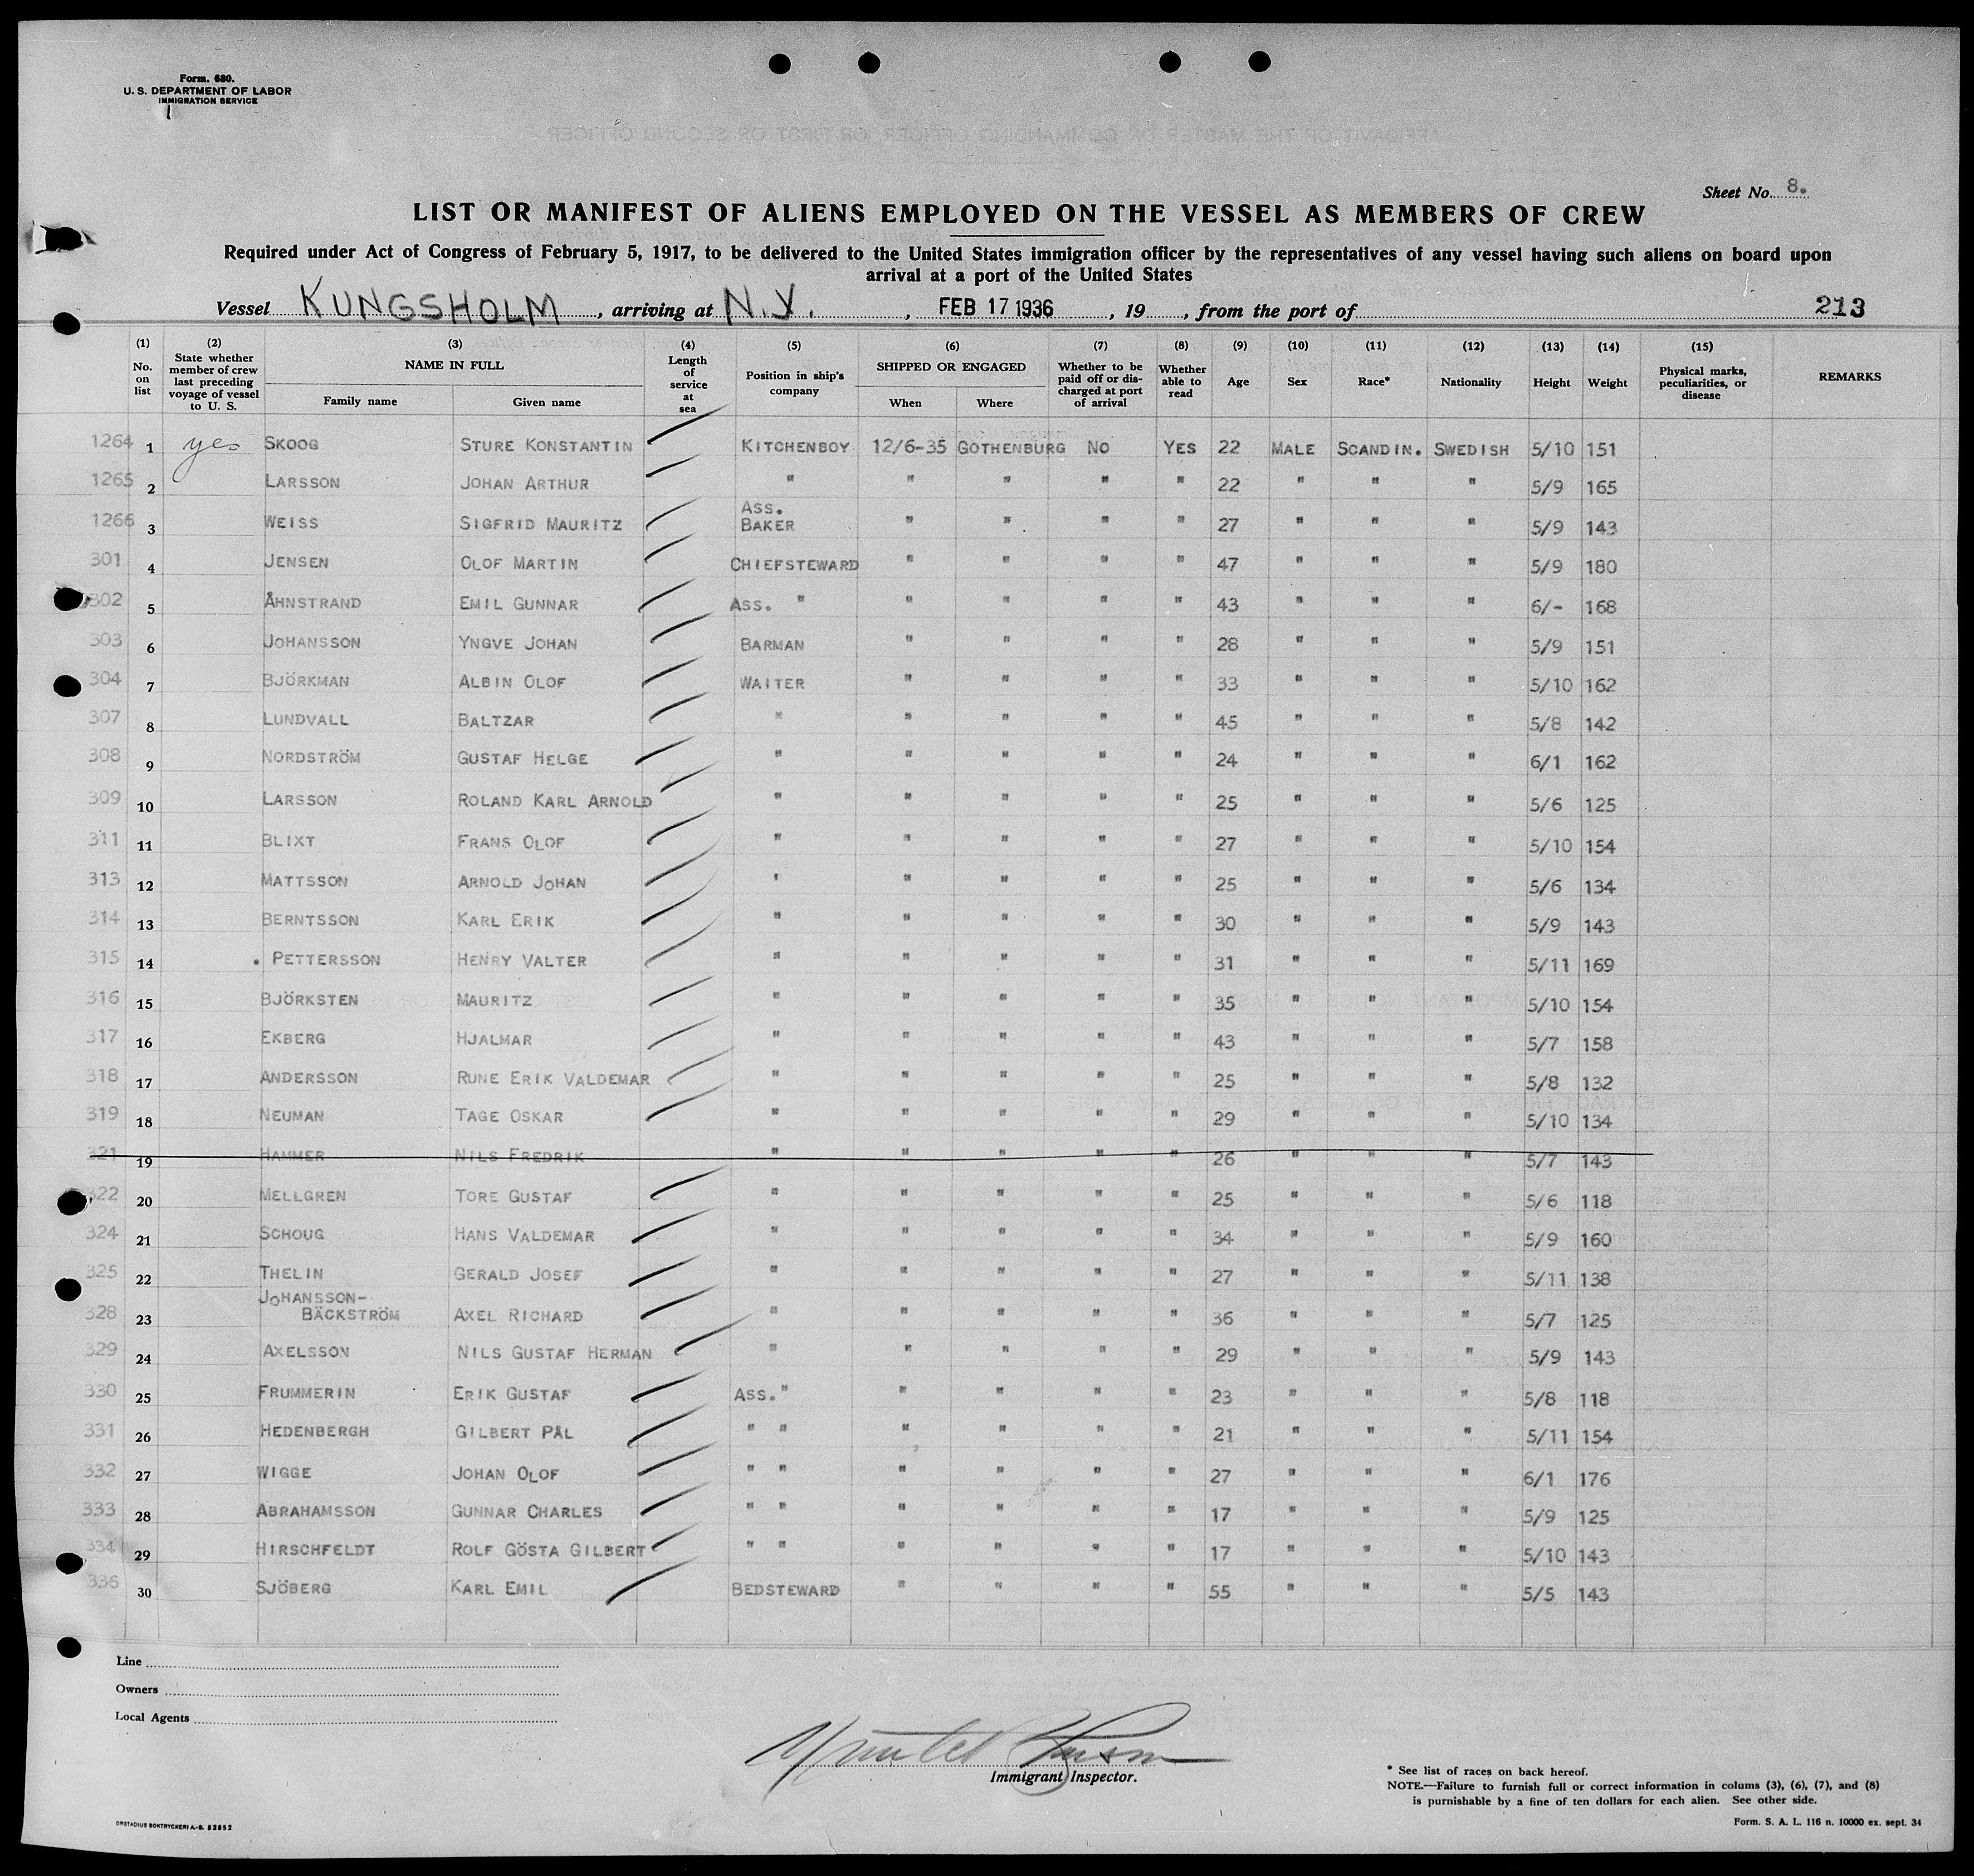 Form. 680.
U. S. DEPARTMENT OF LABOR
IMMIGRATION SERVICE
Sheet No. 8.
LIST OR MANIFEST OF ALIENS EMPLOYED ON THE VESSEL AS MEMBERS OF CREW
Required under Act of Congress of February 5, 1917, to be delivered to the United States immigration officer by the representatives of any vessel having such aliens on board upon
arrival at a port of the United States
Vessel KUNGSHOLM, arriving at N.Y., FEB 17 1936, 19, from the port of 213
(1) (2) (3) (4) (5) (6) (7) (8) (9) (10) (11) (12) (13) (14) (15)
No. on list State whether member of crew last preceding voyage of vessel to U. S. NAME IN FULL Family name Given name Length of service at sea Position in ship's company SHIPPED OR ENGAGED When Where Whether to be paid off or discharged at port of arrival Whether able to read Age Sex Race* Nationality Height Weight Physical marks, peculiarities, or disease REMARKS
1264 1 yes SKOOG STURE KONSTANTIN KITCHENBOY 12/6-35 GOTHENBURG NO YES 22 MALE SCANDIN. SWEDISH 5/10 151
1265 2 LARSSON JOHAN ARTHUR " " " " " 22 " " " 5/9 165
1266 3 WEISS SIGFRID MAURITZ ASS. BAKER " " " " 27 " " " 5/9 143
301 4 JENSEN OLOF MARTIN CHIEFSTEWARD " " " " 47 " " " 5/9 180
302 5 ÅHNSTRAND EMIL GUNNAR ASS. " " " " " 43 " " " 6/- 168
303 6 JOHANSSON YNGVE JOHAN BARMAN " " " " 28 " " " 5/9 151
304 7 BJÖRKMAN ALBIN OLOF WAITER " " " " 33 " " " 5/10 162
307 8 LUNDVALL BALTZAR " " " " " 45 " " " 5/8 142
308 9 NORDSTRÖM GUSTAF HELGE " " " " " 24 " " " 6/1 162
309 10 LARSSON ROLAND KARL ARNOLD " " " " " 25 " " " 5/6 125
311 11 BLIXT FRANS OLOF " " " " " 27 " " " 5/10 154
313 12 MATTSSON ARNOLD JOHAN " " " " " 25 " " " 5/6 134
314 13 BERNTSSON KARL ERIK " " " " " 30 " " " 5/9 143
315 14 . PETTERSSON HENRY VALTER " " " " " 31 " " " 5/11 169
316 15 BJÖRKSTEN MAURITZ " " " " " 35 " " " 5/10 154
317 16 EKBERG HJALMAR " " " " " 43 " " " 5/7 158
318 17 ANDERSSON RUNE ERIK VALDEMAR " " " " " 25 " " " 5/8 132
319 18 NEUMAN TAGE OSKAR " " " " " 29 " " " 5/10 134
321 19 HAMMER NILS FREDRIK " " " " " 26 " " " 5/7 143
322 20 MELLGREN TORE GUSTAF " " " " " 25 " " " 5/6 118
324 21 SCHOUG HANS VALDEMAR " " " " " 34 " " " 5/9 160
325 22 THELIN GERALD JOSEF " " " " " 27 " " " 5/11 138
JOHANSSON-
328 23 BÄCKSTRÖM AXEL RICHARD " " " " " 36 " " " 5/7 125
329 24 AXELSSON NILS GUSTAF HERMAN " " " " " 29 " " " 5/9 143
330 25 FRUMMERIN ERIK GUSTAF ASS. " " " " " 23 " " " 5/8 118
331 26 HEDENBERGH GILBERT PÅL " " " " " " 21 " " " 5/11 154
332 27 WIGGE JOHAN OLOF " " " " " " 27 " " " 6/1 176
333 28 ABRAHAMSSON GUNNAR CHARLES " " " " " " 17 " " " 5/9 125
334 29 HIRSCHFELDT ROLF GÖSTA GILBERT " " " " " " 17 " " " 5/10 143
336 30 SJÖBERG KARL EMIL BEDSTEWARD " " " " 55 " " " 5/5 143
Line
Owners
Local Agents
Immigrant Inspector.
* See list of races on back hereof.
NOTE.—Failure to furnish full or correct information in colums (3), (6), (7), and (8)
is purnishable by a fine of ten dollars for each alien. See other side.
ORSTADIUS BOKTRYCKERI A.-B. 52852
Form. S. A. L. 116 n. 10000 ex. sept. 34